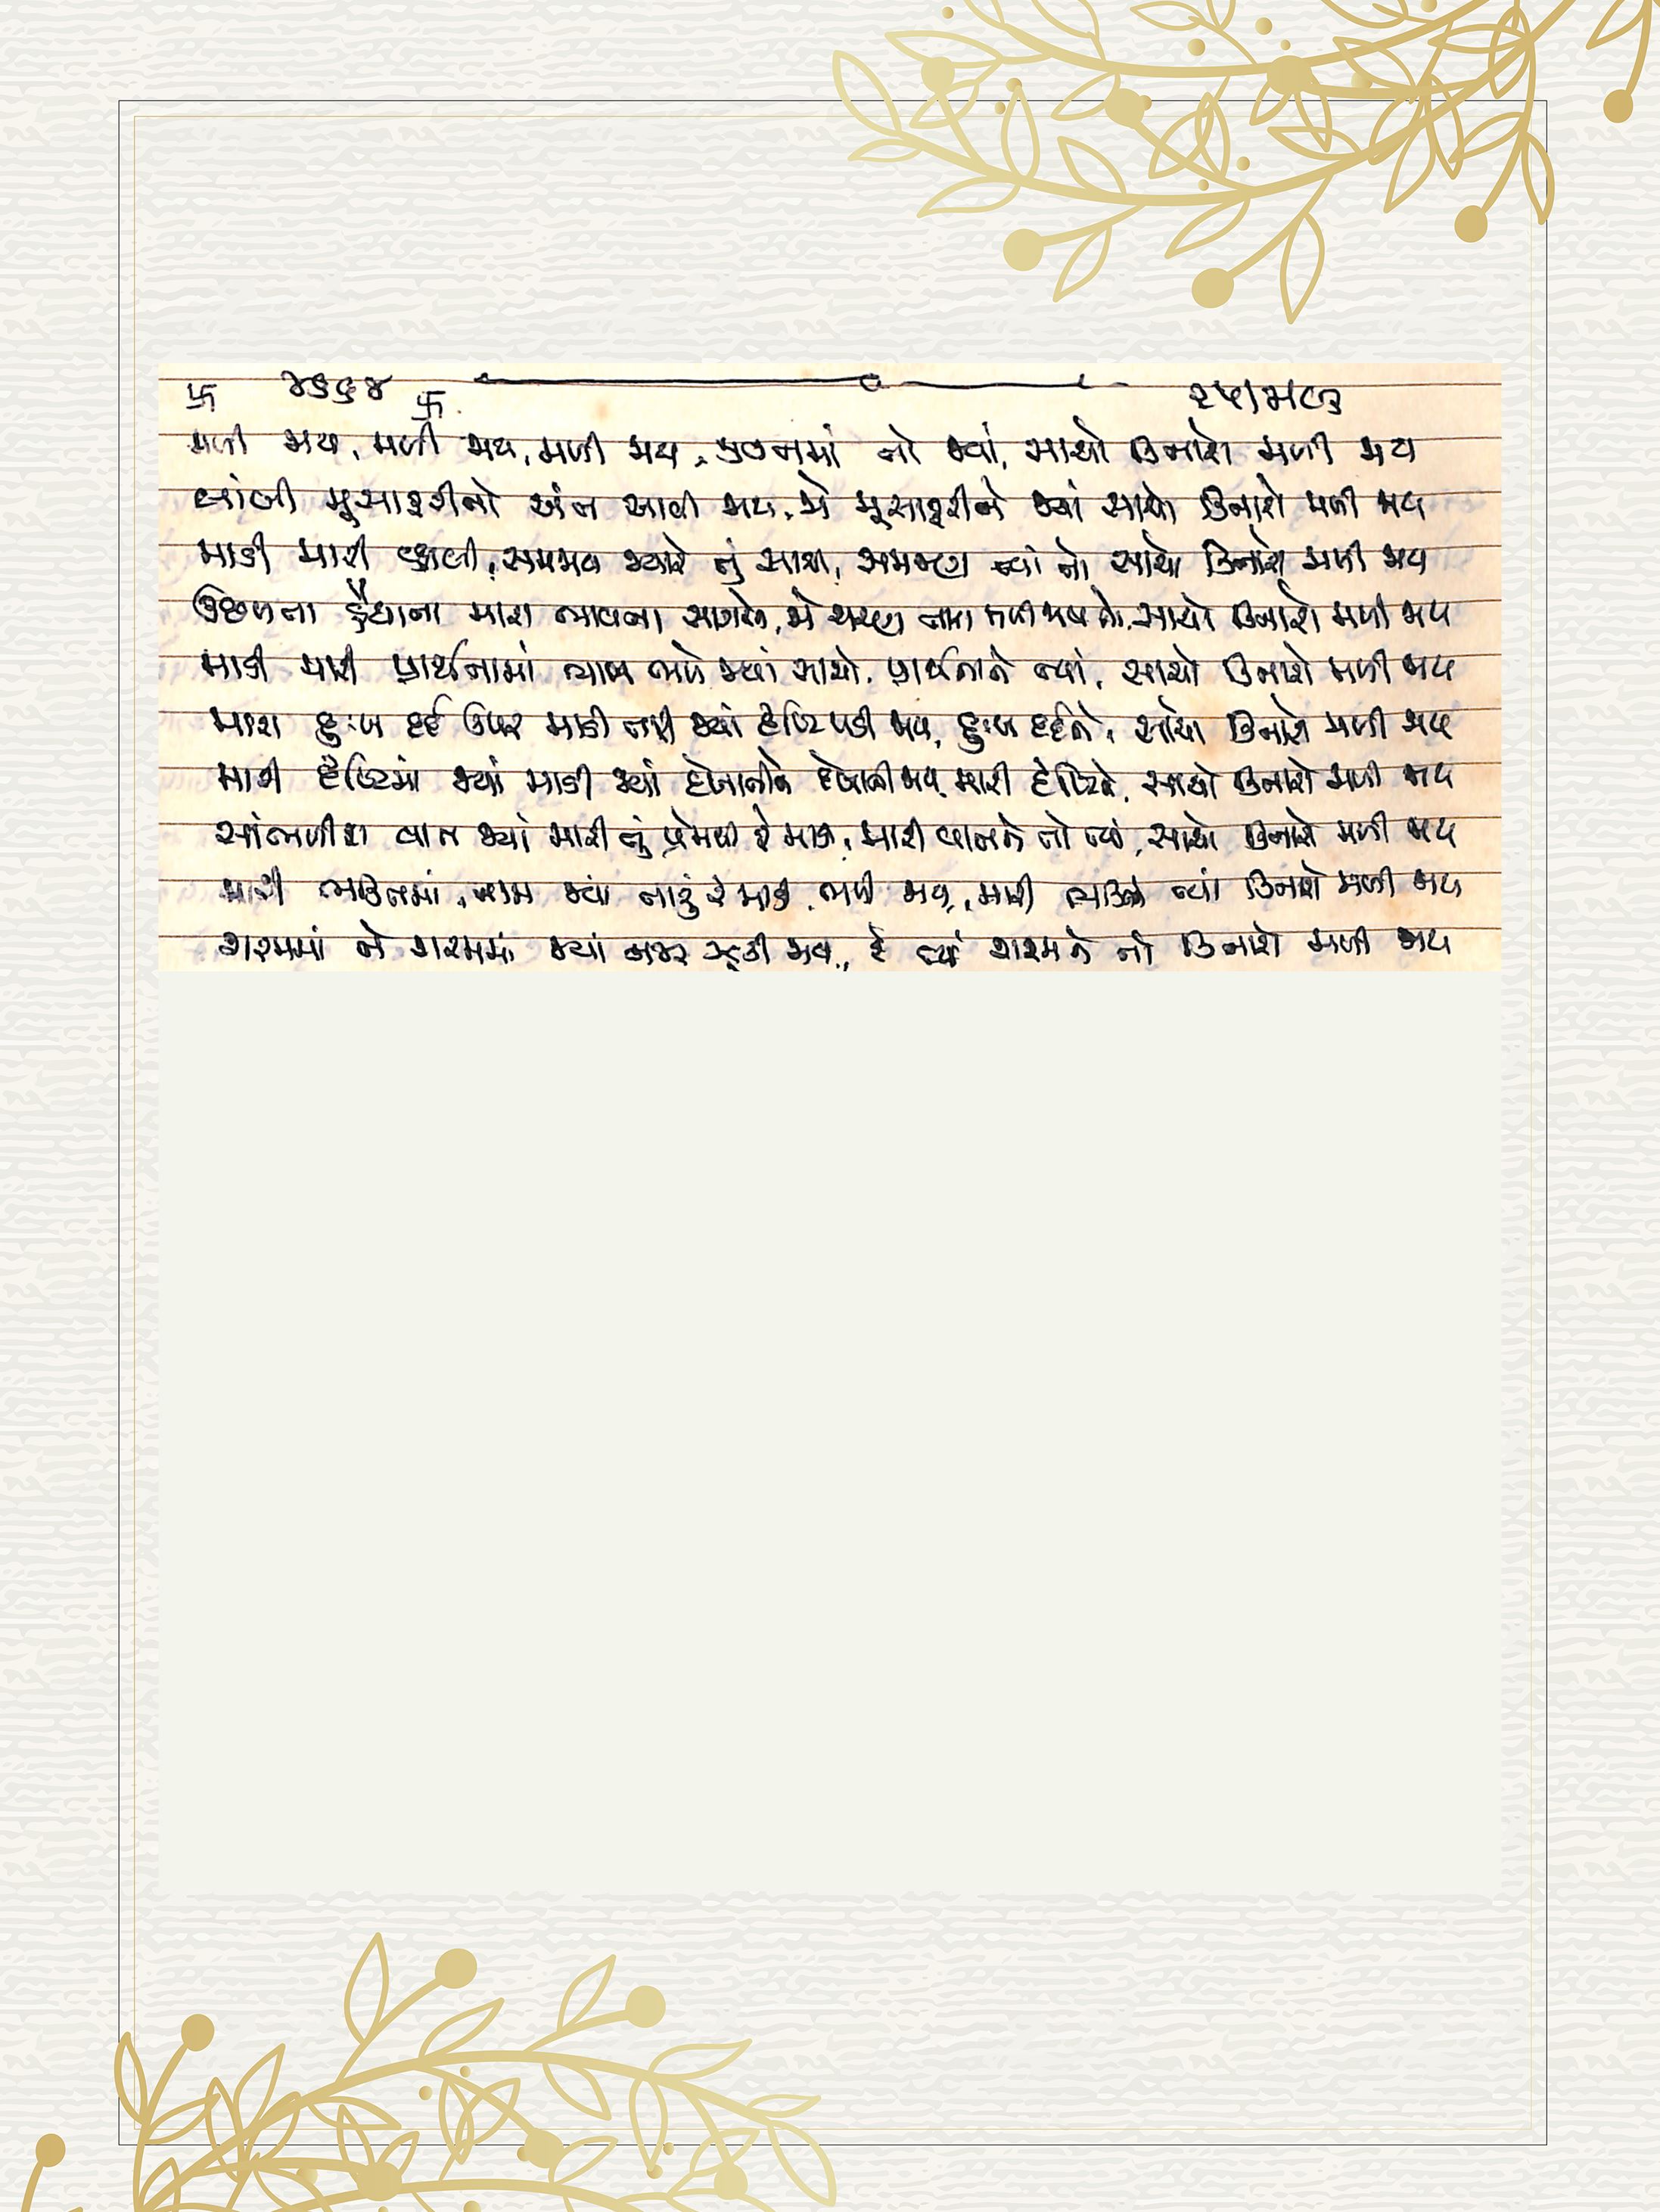 卐 ૪૭૬૪ 卐
મળી જાય, મળી જાય, મળી જાય, જીવનમાં તો જ્યાં, સાચો કિનારો મળી જાય
લાંબી મુસાફરીનો અંત આવી જાય, એ મુસાફરીને જ્યાં સાચો કિનારો મળી જાય
માડી મારી સમજાય જ્યારે તું સાચી, સમજણ ત્યાં તો સાચો કિનારો મળી જાય
ઉછળતા હૈયાના મારા ભાવના સાગરને, જો ચરણ તારા મળી જાય તો, સાચો કિનારો મળી જાય
માડી મારી પ્રાર્થનામાં ભાવ ભળે જ્યાં સાચો, પ્રાર્થનાને ત્યાં, સાચો કિનારો મળી જાય
મારા દુઃખ દર્દ ઉપર માડી તારી જ્યાં દૃષ્ટિ પડી જાય, દુઃખ દર્દને, સાચો કિનારો મળી જાય
મારી દૃષ્ટિમાં જ્યાં માડી જ્યાં દેખાતીને દેખાતી જાય, મારી દૃષ્ટિને, સાચો કિનારો મળી જાય
સાંભળીશ વાત જ્યાં મારી તું પ્રેમથી રે માડી, મારી વાતને તો ત્યાં, સાચો કિનારો મળી જાય
મારી ભક્તિમાં, જ્યાં તારું રે માડી ભળી જાય, મારી ભક્તિને ત્યાં કિનારો મળી જાય
ગરમમાં ને ગરમમાં જ્યાં નજર ઝૂકી જાય, રે ત્યાં શરમને તો કિનારો મળી જાય